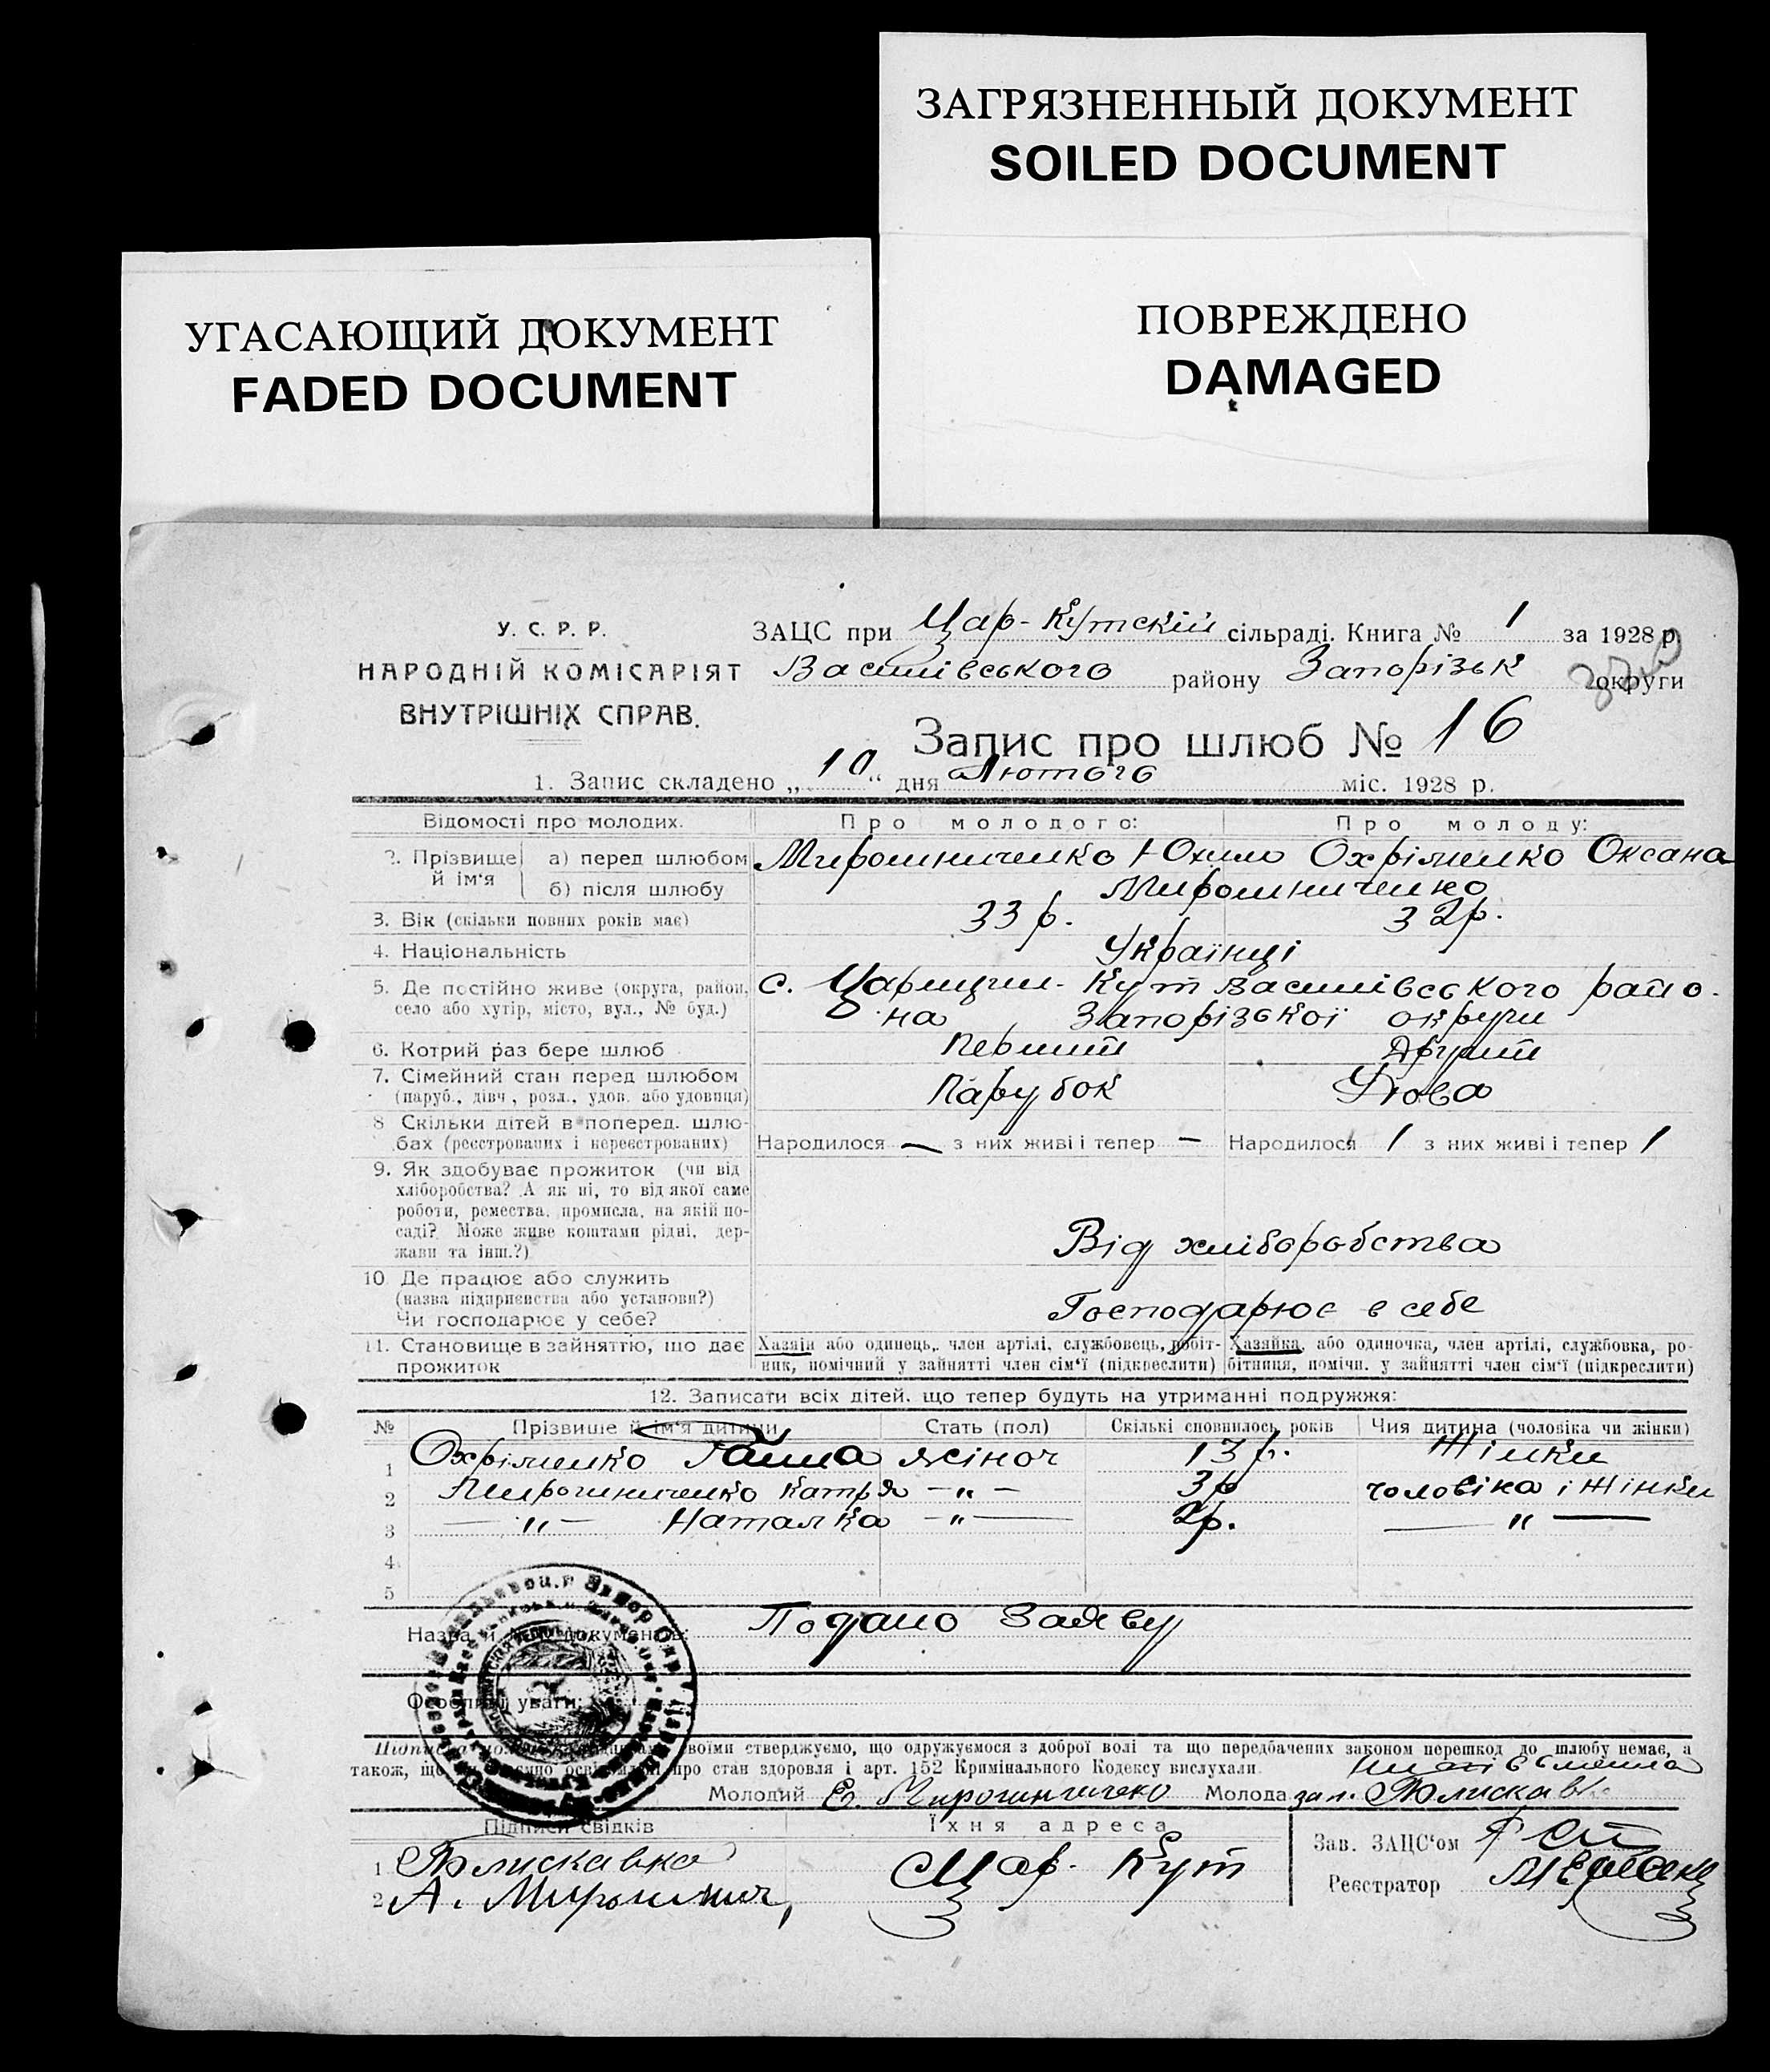 ЗАГРЯЗНЕННЫЙ ДОКУМЕНТ
SOILED DOCUMENT
УГАСАЮЩИЙ ДОКУМЕНТ
FADED DOCUMENT
ПОВРЕЖДЕНО
DAMAGED
У. С. Р. Р.
НАРОДНІЙ КОМІСАРІЯТ
ВНУТРІШНІХ СПРАВ.
ЗАЦС при Цар-Кутскій сільраді. Книга № 1 за 1928 р.
Василівського району Запорізьк округи
Запис про шлюб № 16
1. Запис складено „10“ дня Лютого міс. 1928 р.
Відомості про молодих. Про молодого: Про молоду:
2. Прізвище й ім'я а) перед шлюбом Мирошниченко Юхим Охріменко Оксана
б) після шлюбу Мирошниченко
3. Вік (скільки повних років має) 33 р. 32р.
4. Національність Українці
5. Де постійно живе (округа, район, с. Царицин-Кут Василівського райо-
село або хутір, місто, вул., № буд.) на Запорізької округи
6. Котрий раз бере шлюб Перший Другий
7. Сімейний стан перед шлюбом Парубок Удова
(паруб., дівч., розл., удов. або удовиця)
8 Скільки дітей в поперед. шлю-
бах (реєстрованих і нереєстрованих) Народилося — з них живі і тепер — Народилося 1 з них живі і тепер 1
9. Як здобуває прожиток (чи від
хліборобства? А як ні, то від якої саме
роботи, ремества, промисла, на якій по-
саді? Може живе коштами рідні, дер- Від хліборобства
жави та інш.?)
10. Де працює або служить
(назва підприємства або установи?) Господарює в себе
Чи господарює у себе?
11. Становище в зайняттю, що дає Хазяїн або одинець, член артілі, службовець, робіт- Хазяйка, або одиночка, член артілі, службовка, ро-
прожиток ник, помічний у зайнятті член сім'ї (підкреслити) бітниця, помічн. у зайнятті член сім'ї (підкреслити)
12. Записати всіх дітей, що тепер будуть на утриманні подружжя:
№ Прізвище й ім'я дитини Стать (пол) Скількі сповнилось років Чия дитина (чоловіка чи жінки)
1 Охріменко Ганна жіноч 13 р. Жінки
2 Мирошниченко Катря —„— 3р чоловіка і жінки
3 —„— Наталка —„— 2р. —„—
4.
5
Назва й №№ документів: Подано Заяву
Особливі уваги:
своїми стверджуємо, що одружуємося з доброї волі та що передбачених законом перешкод до шлюбу немає, а
також, що про стан здоровля і арт. 152 Кримінального Кодексу вислухали.
Молодий Е. Мирошниченко Молода
Підписи свідків Їхня адреса Зав. ЗАЦС'ом
1 Блискавка Цар-Кут
2 А. Мирошнич, Реєстратор